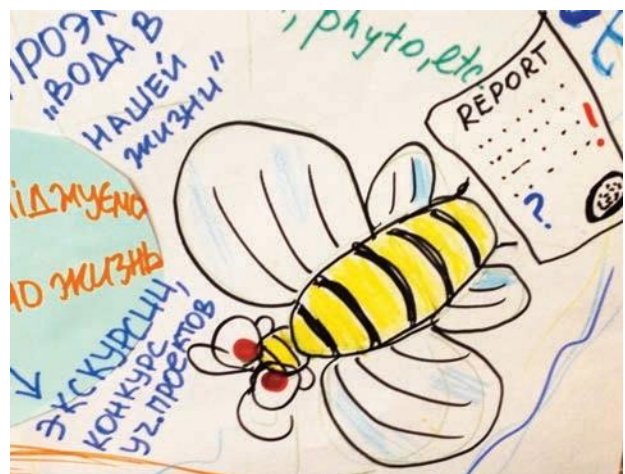 ПРОЭК
„ВОДА В
НАШЕЙ
ЖИЗНИ"
, phyto, etc.
REPORT
!
?
ІДЖУЄМО
ЖИЗНЬ
ЭКСКУРСИИ,
КОНКУРС
УЧ.ПРОЕКТОВ